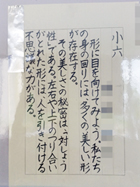 小六
形に目を向けてみよう。私たち
の身の回りには、多くの美しい形
が存在する。
その美しさの秘密は、対しょう
性にある。左右や上下のつり合い
がとれた形には、人を引き付ける
不思議な力がある。